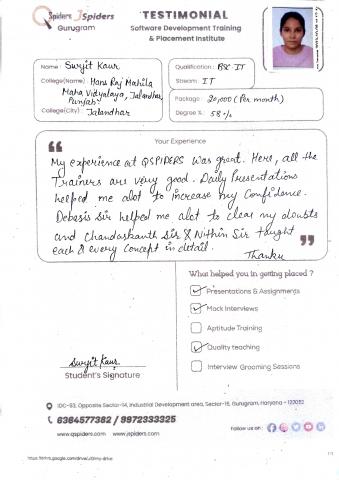 QSpiders JSpiders
Gurugram
TESTIMONIAL
Software Development Training
& Placement Institute
Name : Surjit Kaur
College(Name) : Hans Raj Mahila
Maha Vidyalaya, Jalandhar,
Punjab
College(City) : Jalandhar
Qualification : BSC-IT
Stream : IT
Package : 20,000 (Per month)
Degree % : 58%
Your Experience
My experience at QSPIDERS was great. Here, all the
Trainers are very good. Daily Presentations
helped me alot to increase my Confidence.
Debasis sir helped me alot to clear my doubts
and Chandaskanth Sir & Nithin Sir taught
each & every Concept in detail.
Thanku
What helped you in getting placed ?
Presentations & Assignments
Mock Interviews
Aptitude Training
Quality teaching
Interview Grooming Sessions
Surjit Kaur
Student's Signature
IDC-53, Opposite Sector-14, Industrial Development area, Sector-16, Gurugram, Haryana - 122052
6364577382 / 9972333325
www.qspiders.com www.jspiders.com
Follow us on :
1/1